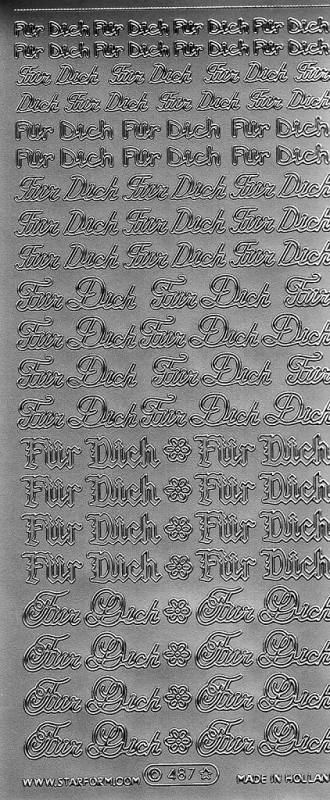 Für Dich Für Dich Für Dich Für Dich
Für Dich Für Dich Für Dich Für Dich
Für Dich Für Dich Für Dich Für
Dich Für Dich Für Dich Für Dich
Für Dich Für Dich Für Dich
Für Dich Für Dich Für Dich
Für Dich Für Dich Für Dich
Für Dich Für Dich Für Dich
Für Dich Für Dich Für Dich
Für Dich Für Dich Für
Für Dich Für Dich Dich
Für Dich Für Dich Für
Für Dich Für Dich Dich
Für Dich Für Dich
Für Dich Für Dich
Für Dich Für Dich
Für Dich Für Dich
Für Dich Für Dich
Für Dich Für Dich
Für Dich Für Dich
Für Dich Für Dich
WWW.STARFORM.COM © 487 MADE IN HOLLAN